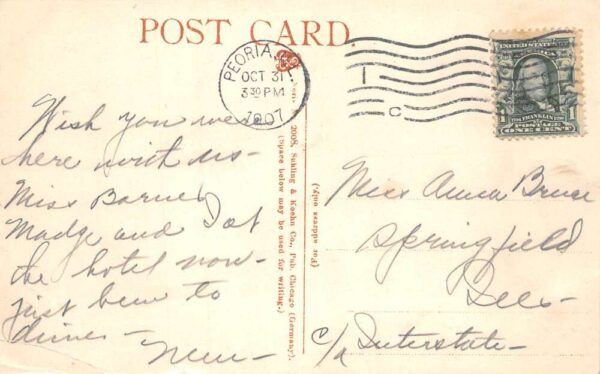 POST CARD.
PEORIA, ILL.
OCT 31
3 30 PM
1907
1
C
UNITED STATES
FRANKLIN
1 POSTAGE 1
ONE CENT
Wish you were
here with us-
Miss Barnes
Madge and I at
the hotel now-
just been to
dinner-
No. 2008. Suhling & Koehn Co., Pub. Chicago (Germany).
(Space below may be used for writing.)
(For address only.)
Miss Anna Bruce
Springfield
Ills-
c/o Interstate-